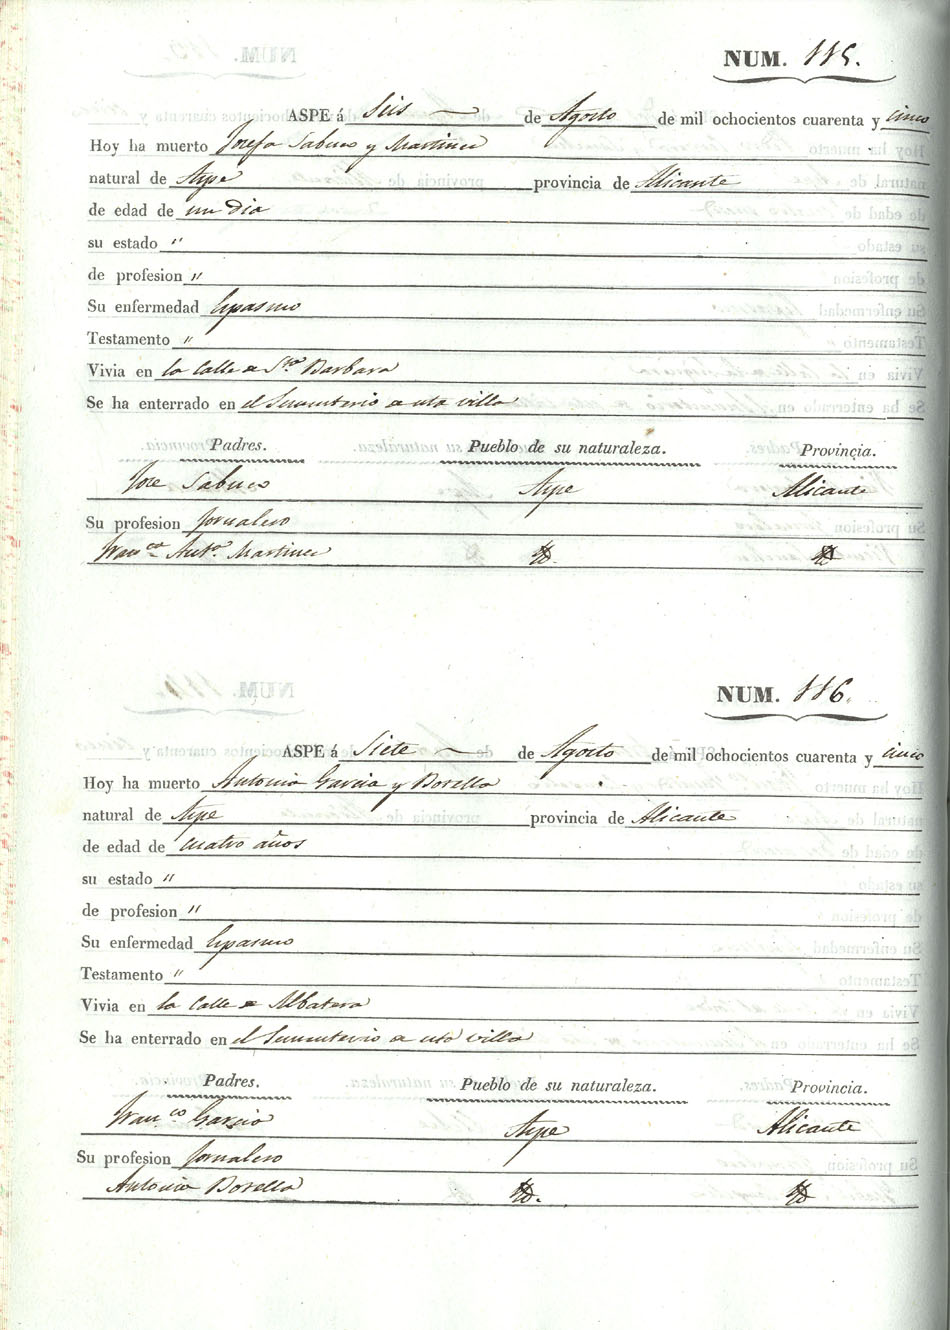 NUM. 115.
ASPE á Seis de Agosto de mil ochocientos cuarenta y cinco
Hoy ha muerto Josefa Sabuco y Martinez
natural de Aspe provincia de Alicante
de edad de un dia
su estado "
de profesion "
Su enfermedad Espasmo
Testamento "
Vivia en la Calle de Sta Barbara
Se ha enterrado en el Sementerio de esta villa
Padres. Pueblo de su naturaleza. Provincia.
Jose Sabuco Aspe Alicante
Su profesion Jornalero
Franca Anta. Martinez Yd. Yd
NUM. 116.
ASPE á Siete de Agosto de mil ochocientos cuarenta y cinco
Hoy ha muerto Antonio Garcia y Borella
natural de Aspe provincia de Alicante
de edad de cuatro años
su estado "
de profesion "
Su enfermedad Espasmo
Testamento "
Vivia en la Calle de Albatera
Se ha enterrado en el Sementerio de esta villa
Padres. Pueblo de su naturaleza. Provincia.
Franco Garcia Aspe Alicante
Su profesion Jornalero
Antonia Borella Yd. Yd